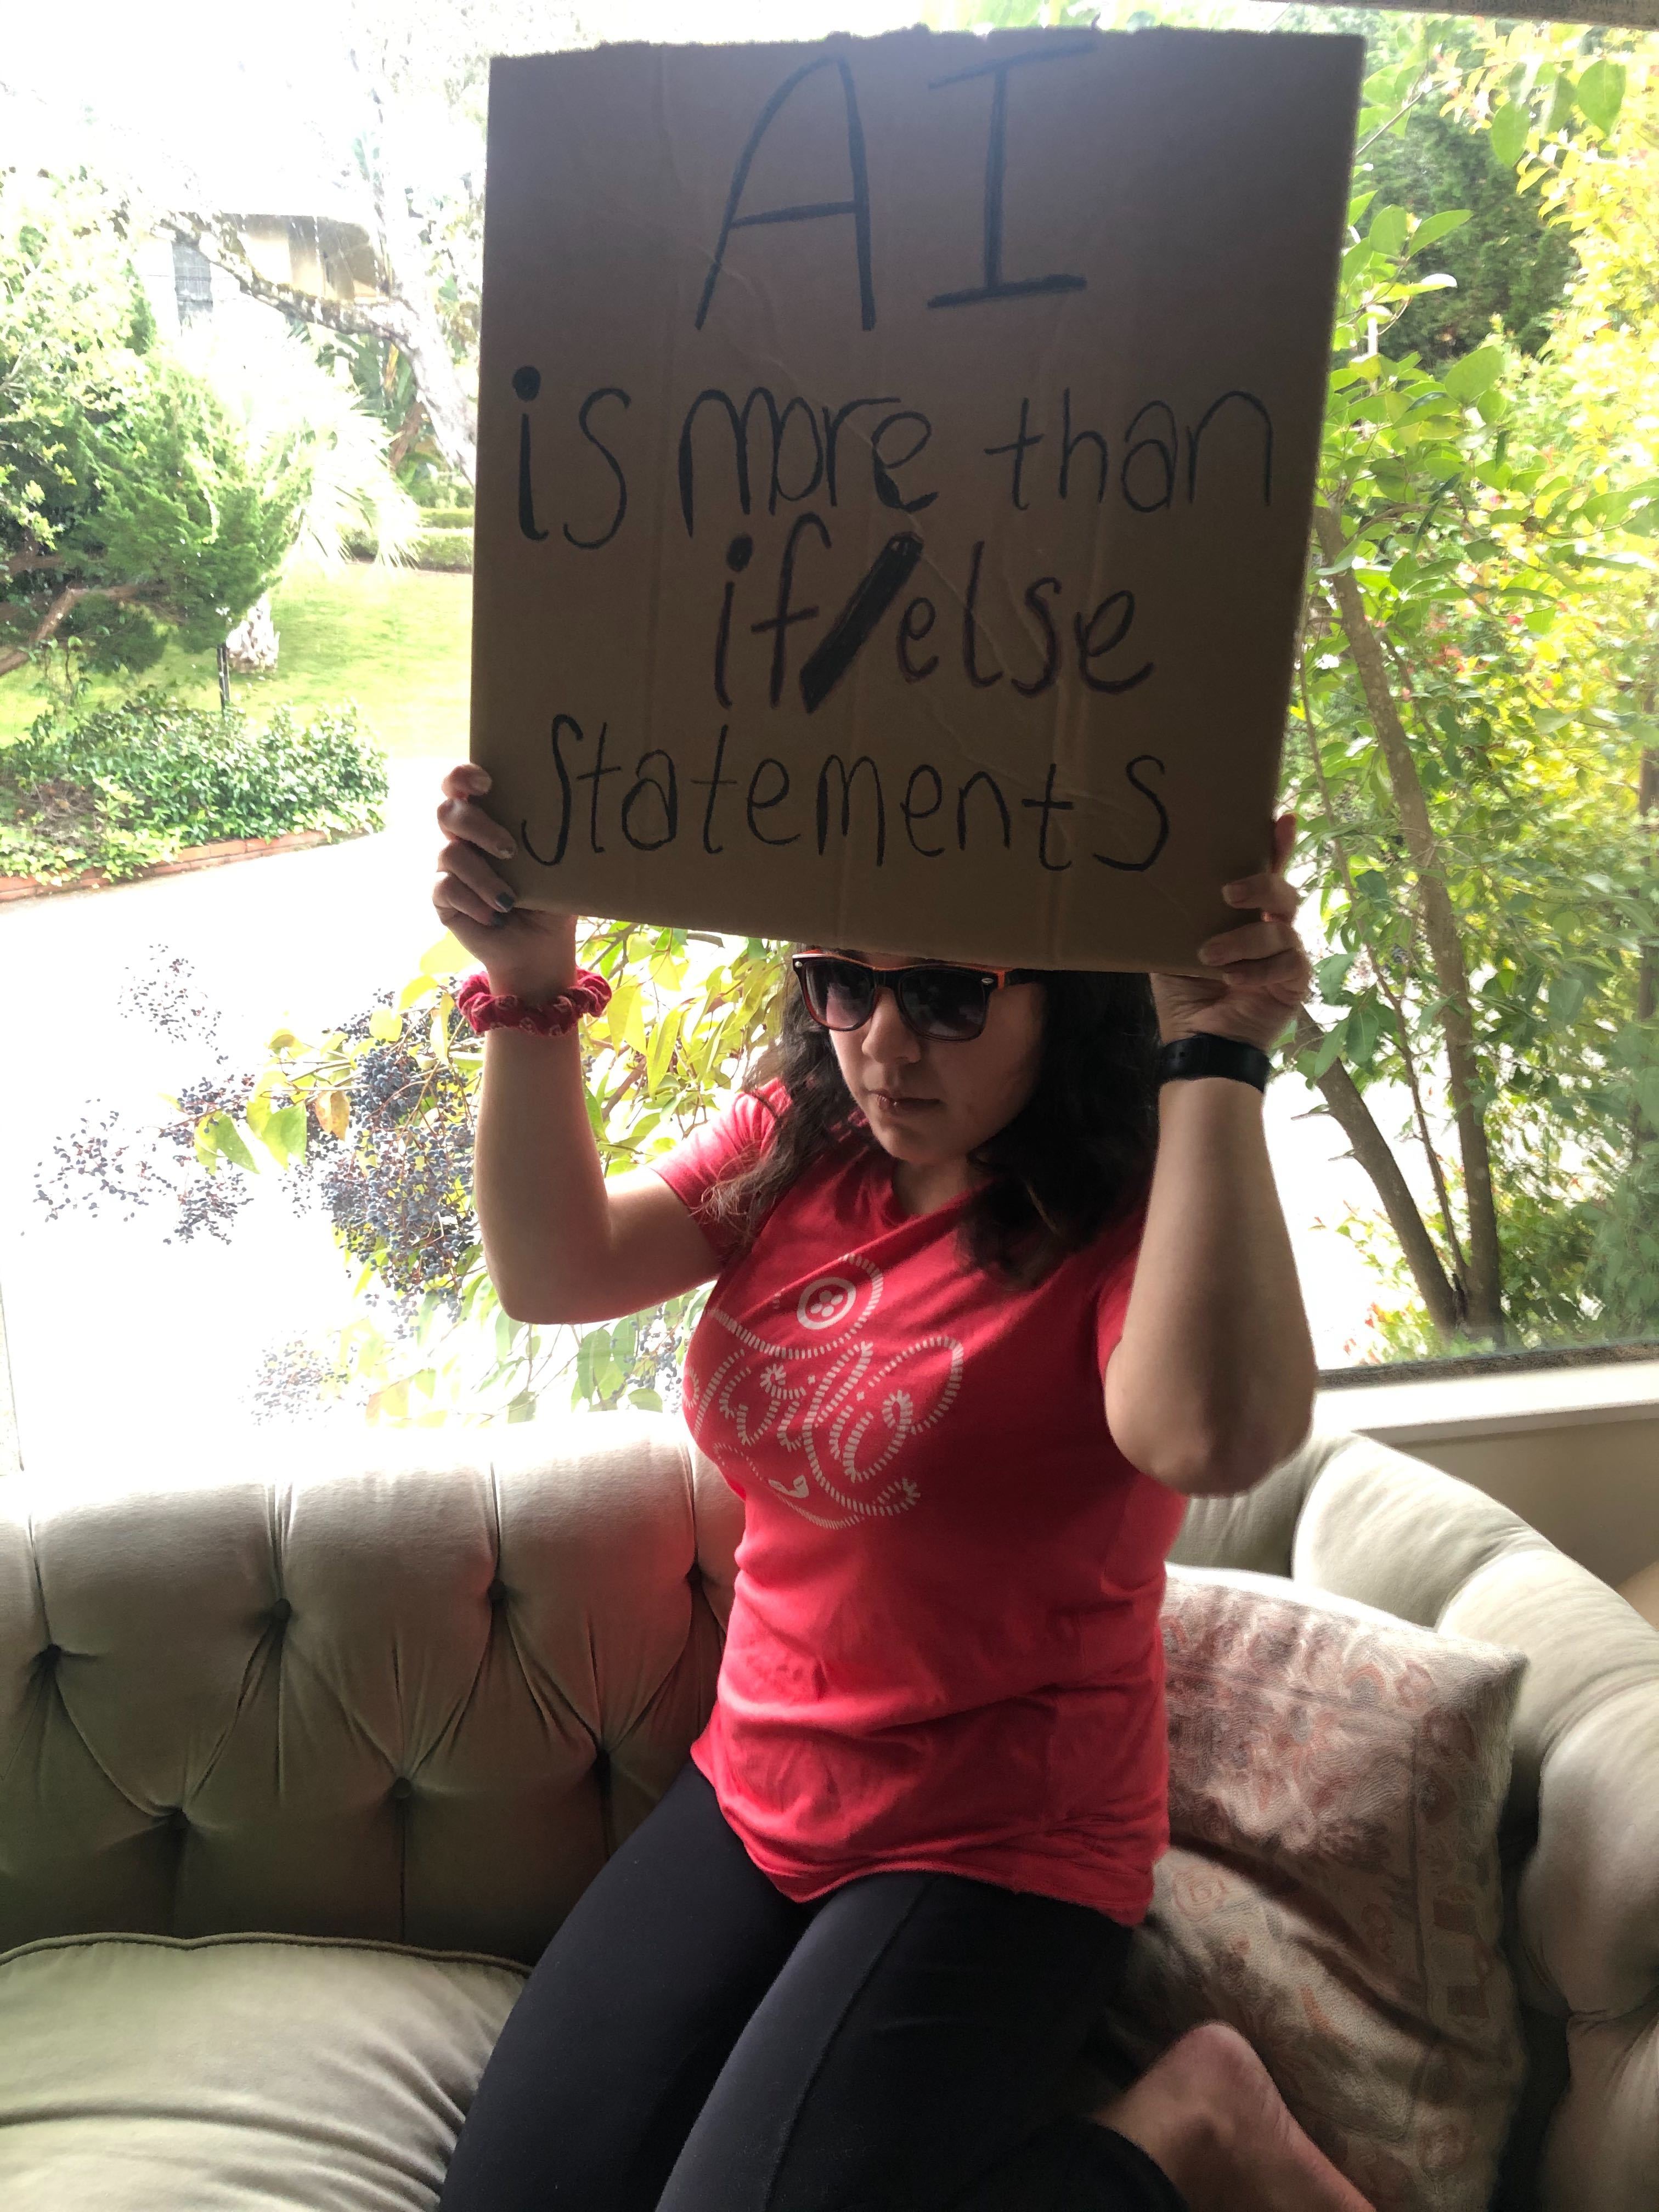 AI
is more than
if/else
Statements